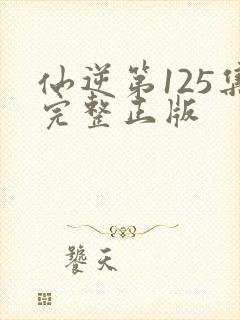 仙逆第125集
完整正版
饕天